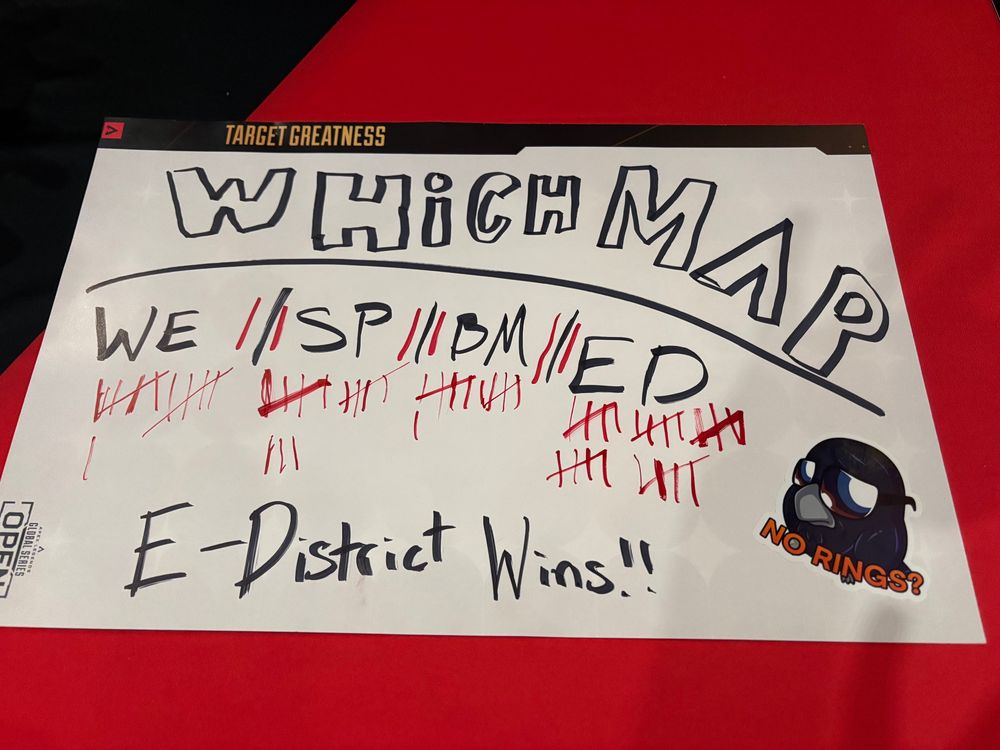 TARGET GREATNESS
WHiCH MAP
WE // SP /// BM /// ED
E-District Wins!!
NO RINGS?
APEX LEGENDS
GLOBAL SERIES
OPEN